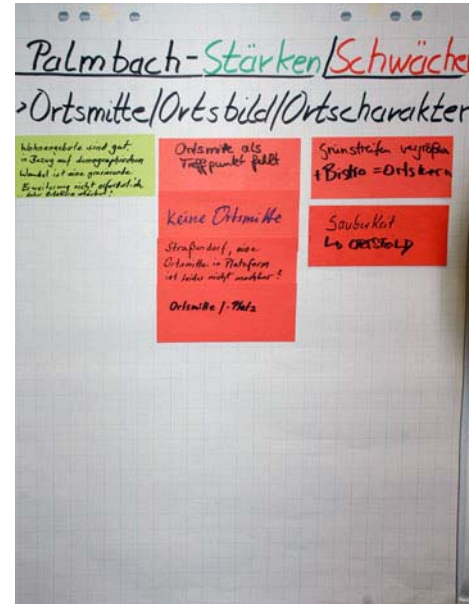 Palmbach-Stärken/Schwäche
>Ortsmitte/Ortsbild/Ortscharakter
Wohnangebote sind gut.
in Bezug auf demographischen
Wandel ist eine
Erweiterung nicht erforderlich
Ortsmitte als
Treffpunkt fehlt
Keine Ortsmitte
Straßendorf, eine
Ortsmitte in Platzform
ist leider nicht machbar!
Ortsmitte / -Platz
Grünstreifen vergrößern
+Bistro = Ortskern
Sauberkeit
↳ ORTSBILD